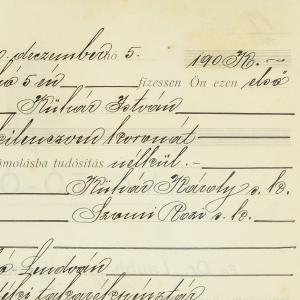 deczember hó 5. 190 K.
hó 5 én fizessen Ön ezen első
Kühár István
kilenczven koronát
számolásba tudósítás nélkül. -
Kühár Károly s. k.
Szomi Rozi s. k.
Lendván
takarékpénztár